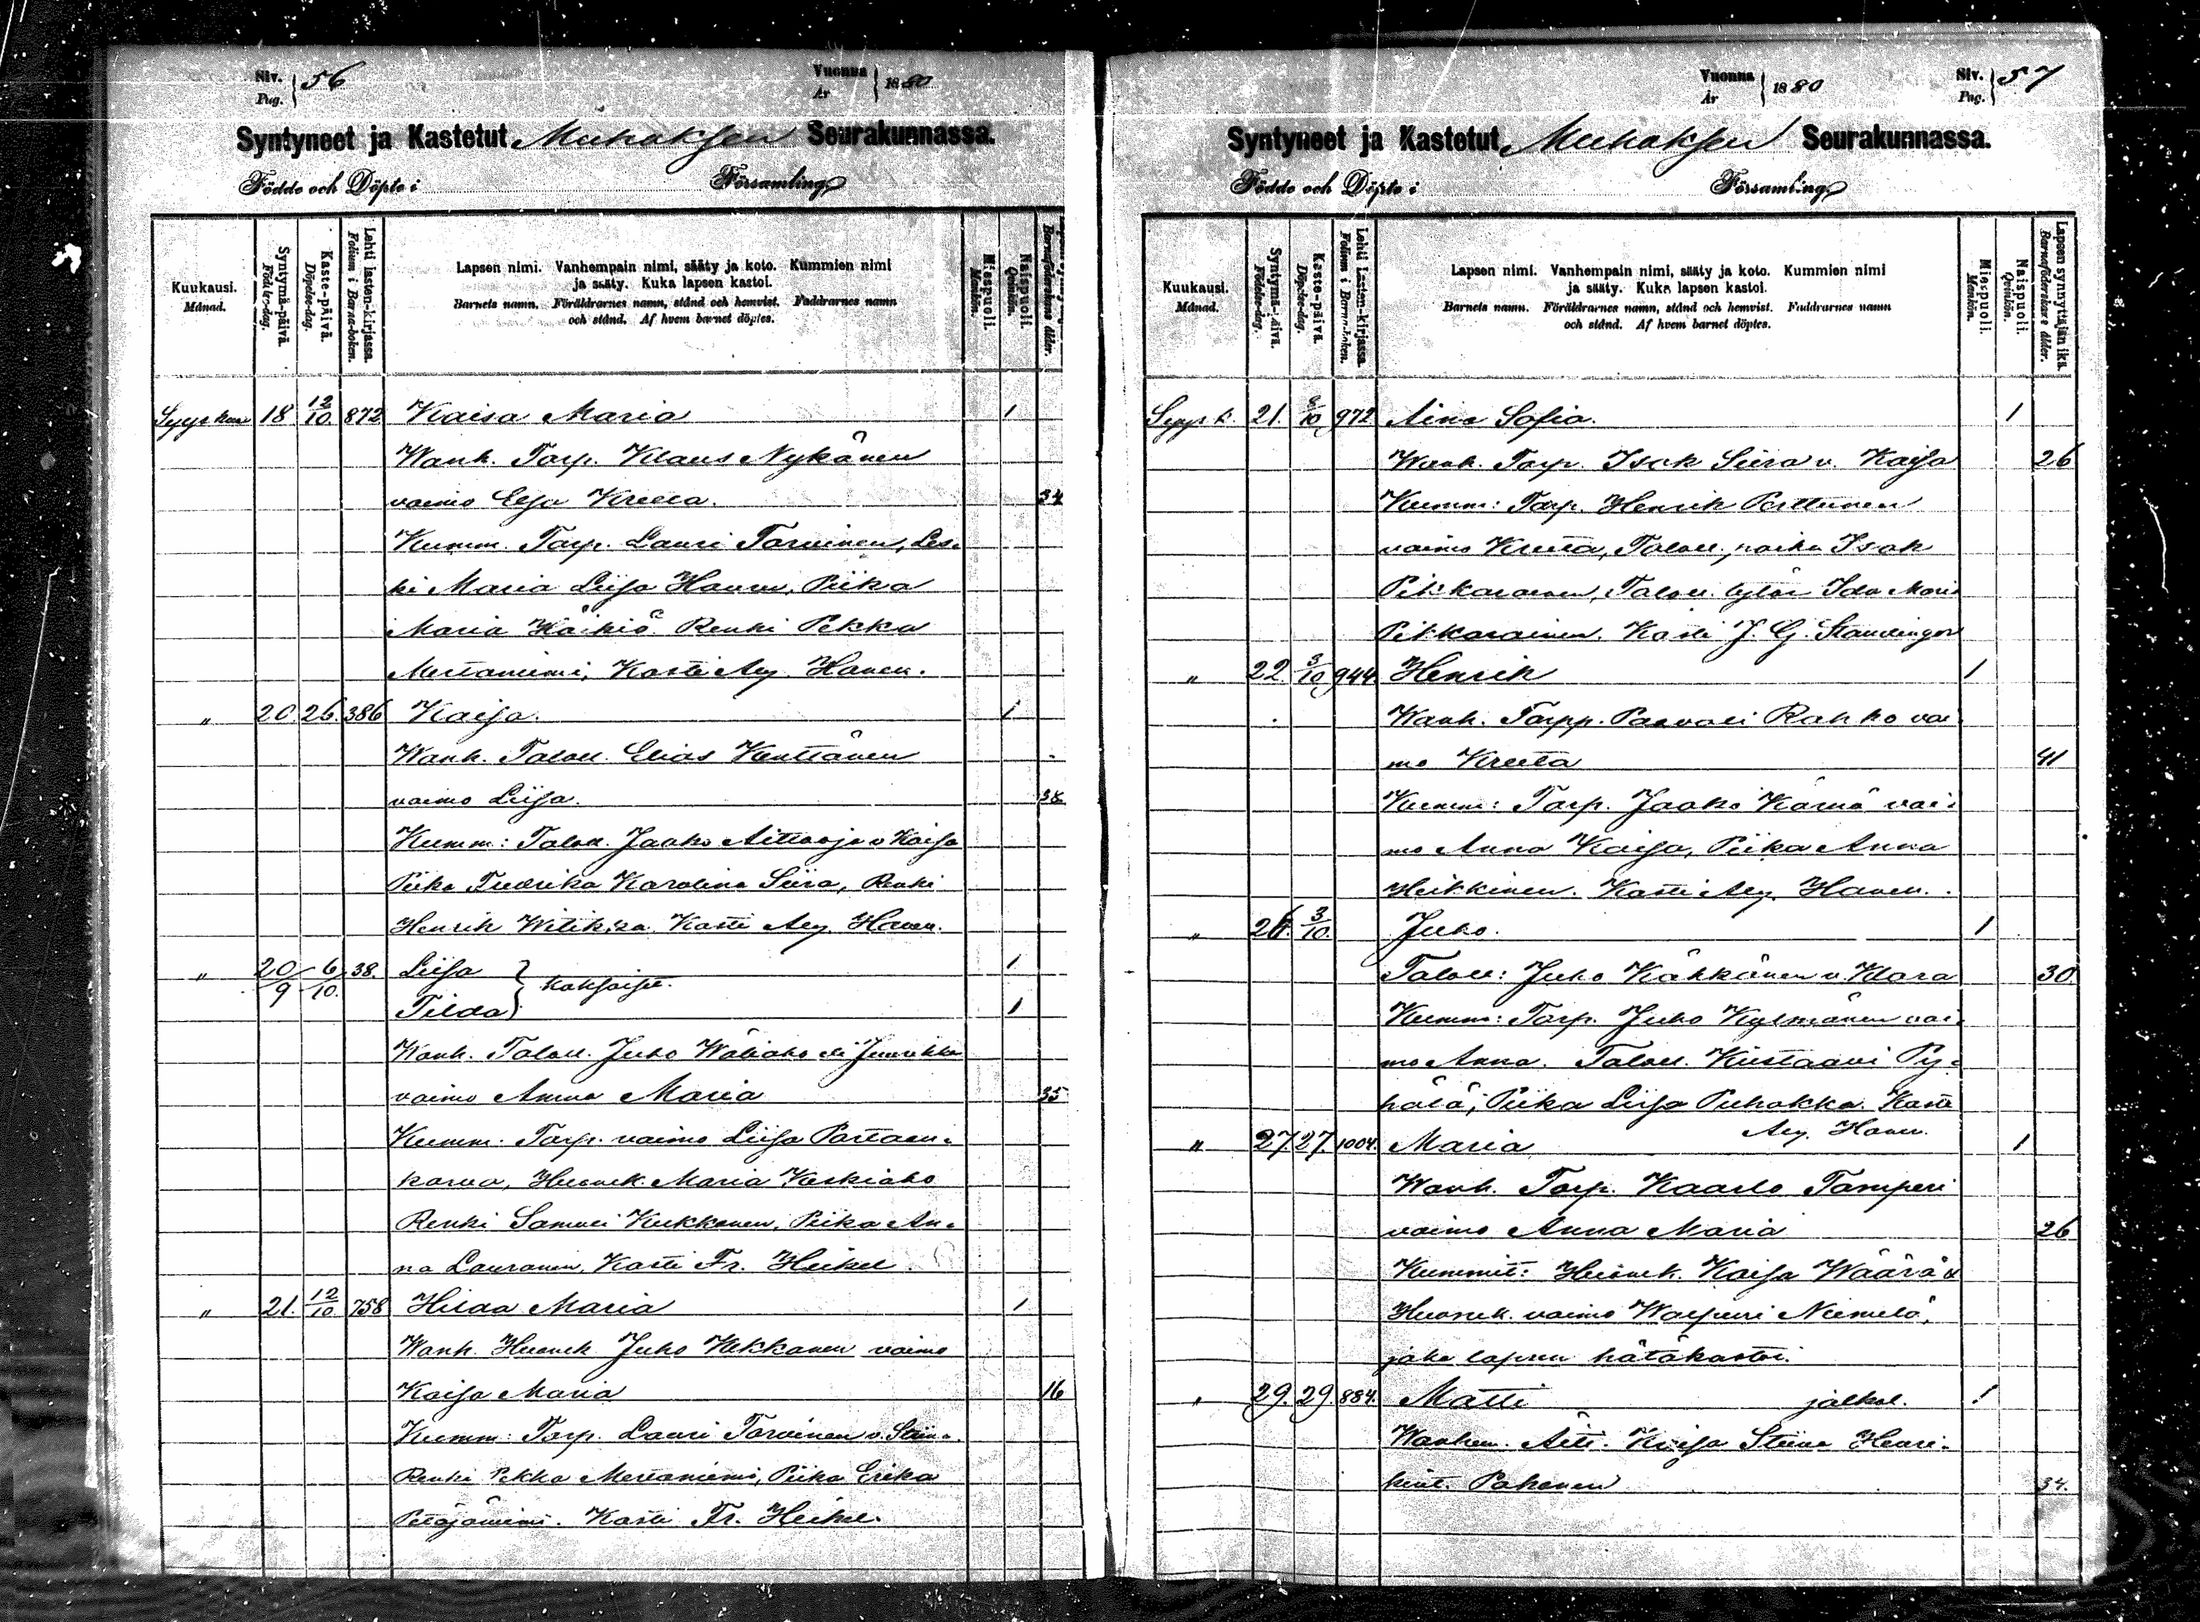 Siv. Pag. } 56
Vuonna År } 1880
Syntyneet ja Kastetut Muhoksen Seurakunnassa.
Födde och Döpte i Församling
Kuukausi. Månad.
Syntymä-päivä. Födelse-dag.
Kaste-päivä. Döpelse-dag.
Lehti lasten-kirjassa. Folium i Barna-boken.
Lapsen nimi. Vanhempain nimi, sääty ja koto. Kummien nimi
ja sääty. Kuka lapsen kastoi.
Barnets namn. Föräldrarnes namn, stånd och hemvist. Faddrarnes namn
och stånd. Af hvem barnet döptes.
Miespuoli. Mankön.
Naispuoli. Qvinkön.
Barnaföderskans ålder.
Syyskuu 18 12/10. 872 Kaisa Maria 1
Wanh. Torp. Klaus Nykänen
vaimo Elsa Kreeta. 34
Kumm. Torp. Lauri Torvinen, Les-
ki Maria Liisa Hannu, Piika
Maria Häikiö Renki Pekka
Mertaniemi, Kasti Aej. Haven.
" 20. 26. 386 Kaisa. 1
Wanh. Taloll. Elias Kenttänen
vaimo Liisa. 38
Kumm: Taloll. Jaako Aittaoja v Kaisa
Piika Fredrika Karolina Siira, Renki
Henrik Kasti Aej. Haven.
" 20/9 6/10. 38. Liisa } kaksoiset. 1
Tilda } 1
Wanh. Taloll. Juho Wäliaho eli Junukka
vaimo Anna Maria 35
Kumm. Torp. vaimo Liisa Partaan-
karva, Huonek. Maria Keskiaho
Renki Samuli Kukkonen, Piika An-
na Lauranen, Kasti Fr. Heikel
" 21. 12/10. 758 Hilda Maria 1
Wanh. Huonek. Juho Kekkonen vaimo
Kaisa Maria 16
Kumm: Torp. Lauri Torvinen v. Stiina.
Renki Pekka Mertaniemi, Piika Erika
Petäjäniemi. Kasti Fr. Heikel.
Vuonna År } 1880
Siv. Pag. } 57
Syntyneet ja Kastetut Muhoksen Seurakunnassa.
Födde och Döpte i Församling
Kuukausi. Månad.
Syntymä-päivä. Födelse-dag.
Kaste-päivä. Döpelse-dag.
Lehti lasten-kirjassa. Folium i Barna-boken.
Lapsen nimi. Vanhempain nimi, sääty ja koto. Kummien nimi
ja sääty. Kuka lapsen kastoi.
Barnets namn. Föräldrarnes namn, stånd och hemvist. Faddrarnes namn
och stånd. Af hvem barnet döptes.
Miespuoli. Mankön.
Naispuoli. Qvinkön.
Lapsen synnyttäjän ikä. Barnaföderskans ålder.
Syysk. 21. /10 972 Aina Sofia. 1
Wanh. Torp. Isak Siira v. Kaisa 26
Kumm: Torp. Henrik Parttunen
vaimo Kreeta, Taloll. poika Isak
Pitkänen, Taloll. tytär Ida Maria
Pikkarainen. Kasti J. G. Standinger
" 22. 3/10 944. Henrik 1
Wanh. Torpp. Paavali Rahko vai-
mo Kreeta 41
Kumm: Torp. Jaako Kärnä vai-
mo Anna Kaisa, Piika Anna
Heikkinen. Kasti Aej. Haven.
" 26. 3/10. Juho. 1
Taloll: Juho Kähkönen v. Klara 30
Kumm: Torp. Juho Kylmänen vai-
mo Anna. Taloll. Kustaavi Py-
hälä, Piika Liisa Puhakka Kasti
Aej. Haven.
" 27. 27. 1004. Maria 1
Wanh. Torp. Kaarlo Tamperi
vaimo Anna Maria 26
Kummit: Huonek. Kaisa Wäärä &
Huonek. vaimo Walpuri Niemelä,
joka lapsen hätäkastoi.
" 29. 29. 884. Matti jalkal. 1
Wanhem. Äiti. Kaisa Stiina Henri-
kint. Pahanen 34.